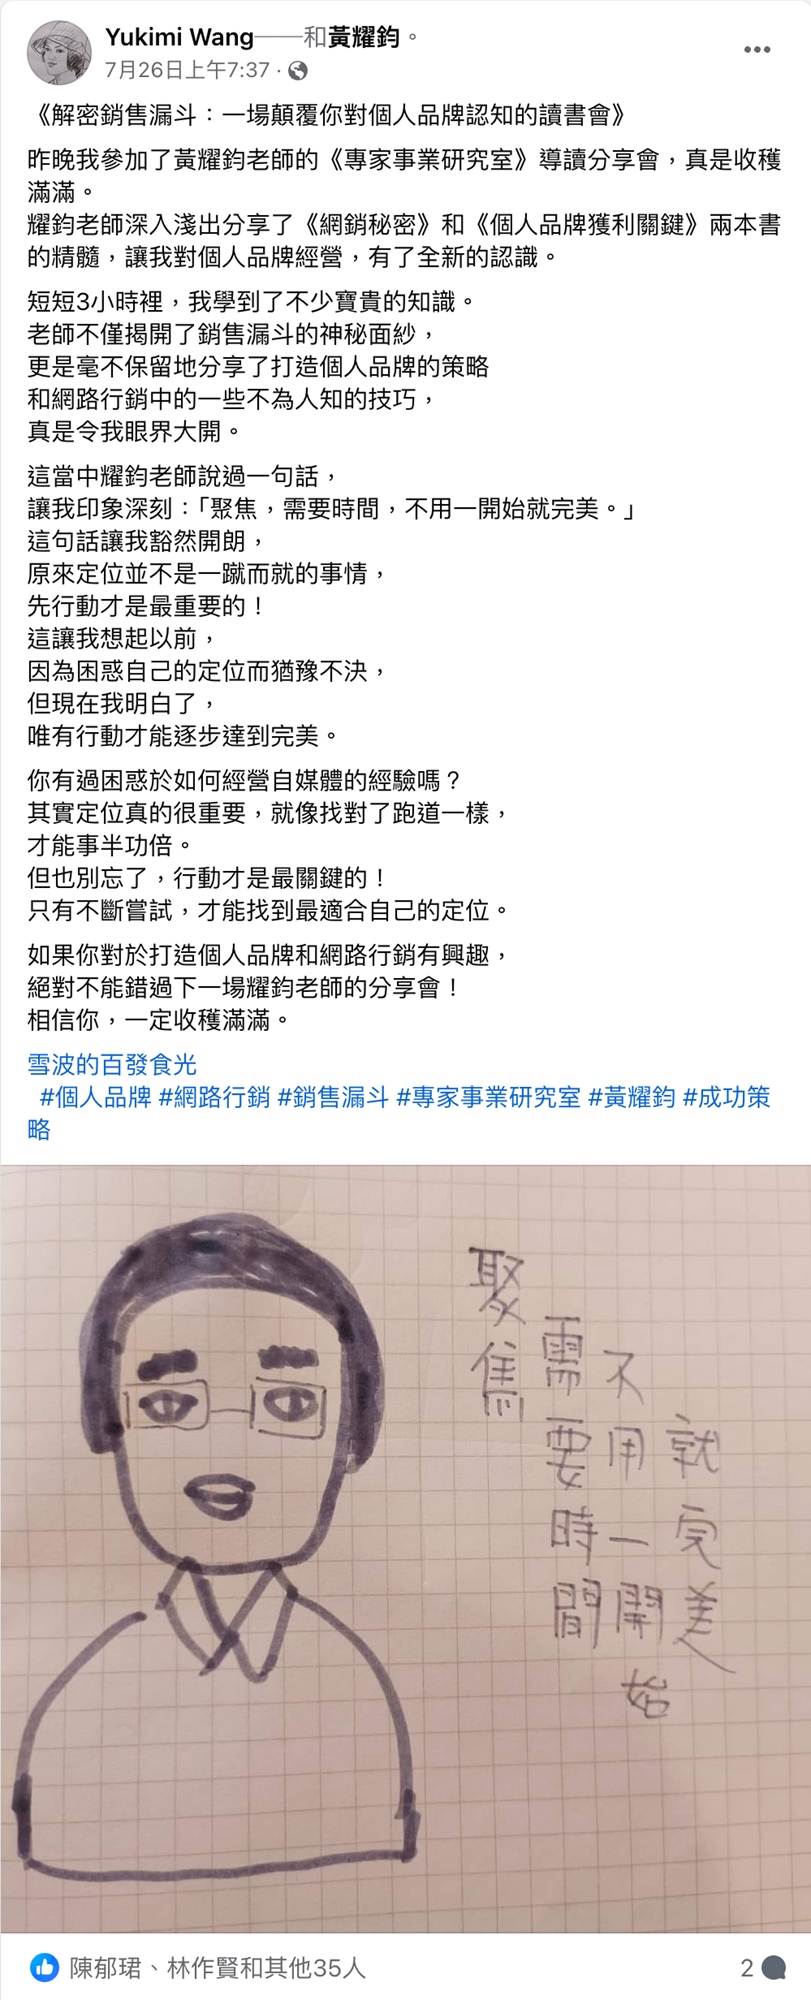 Yukimi Wang——和黃耀鈞。
7月26日上午7:37 ·
《解密銷售漏斗：一場顛覆你對個人品牌認知的讀書會》
昨晚我參加了黃耀鈞老師的《專家事業研究室》導讀分享會，真是收穫
滿滿。
耀鈞老師深入淺出分享了《網銷秘密》和《個人品牌獲利關鍵》兩本書
的精髓，讓我對個人品牌經營，有了全新的認識。
短短3小時裡，我學到了不少寶貴的知識。
老師不僅揭開了銷售漏斗的神秘面紗，
更是毫不保留地分享了打造個人品牌的策略
和網路行銷中的一些不為人知的技巧，
真是令我眼界大開。
這當中耀鈞老師說過一句話，
讓我印象深刻：「聚焦，需要時間，不用一開始就完美。」
這句話讓我豁然開朗，
原來定位並不是一蹴而就的事情，
先行動才是最重要的！
這讓我想起以前，
因為困惑自己的定位而猶豫不決，
但現在我明白了，
唯有行動才能逐步達到完美。
你有過困惑於如何經營自媒體的經驗嗎？
其實定位真的很重要，就像找對了跑道一樣，
才能事半功倍。
但也別忘了，行動才是最關鍵的！
只有不斷嘗試，才能找到最適合自己的定位。
如果你對於打造個人品牌和網路行銷有興趣，
絕對不能錯過下一場耀鈞老師的分享會！
相信你，一定收穫滿滿。
雪波的百發食光
#個人品牌 #網路行銷 #銷售漏斗 #專家事業研究室 #黃耀鈞 #成功策
略
聚焦
需要時間
不用一開始
就完美
陳郁珺、林作賢和其他35人
2